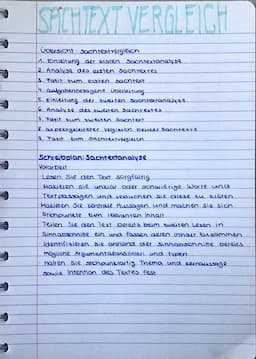 SACHTEXTVERGLEICH
Übersicht: Sachtextvergleich
1. Einleitung der ersten Sachtextanalyse
2. Analyse des ersten Sachtextes
3. Fazit zum ersten Sachtext
4. Aufgabenbezogene Überleitung
5. Einleitung der zweiten Sachtextanalyse
6. Analyse des zweiten Sachtextes
7. Fazit zum zweiten Sachtext
8. Aspektgeleiteter Vergleich beider Sachtexte
9. Fazit zum Sachtextvergleich
Schreibplan: Sachtextanalyse
Vorarbeit
Lesen Sie den Text sorgfältig
Markieren Sie unklar oder schwierige Worte und
Textpassagen und versuchen Sie diese zu klären
Markieren Sie zentrale Aussagen und machen Sie sich
Stichpunkte zum relevanten Inhalt
Teilen Sie den Text bereits beim zweiten Lesen in
Sinnabschnitte ein und fassen deren Inhalt zusammen
Identifizieren Sie anhand der Sinnabschnitte bereits
mögliche Argumentationslinien und typen
Halten Sie stichpunktartig Thema und Kernaussage
sowie Intention des Textes fest